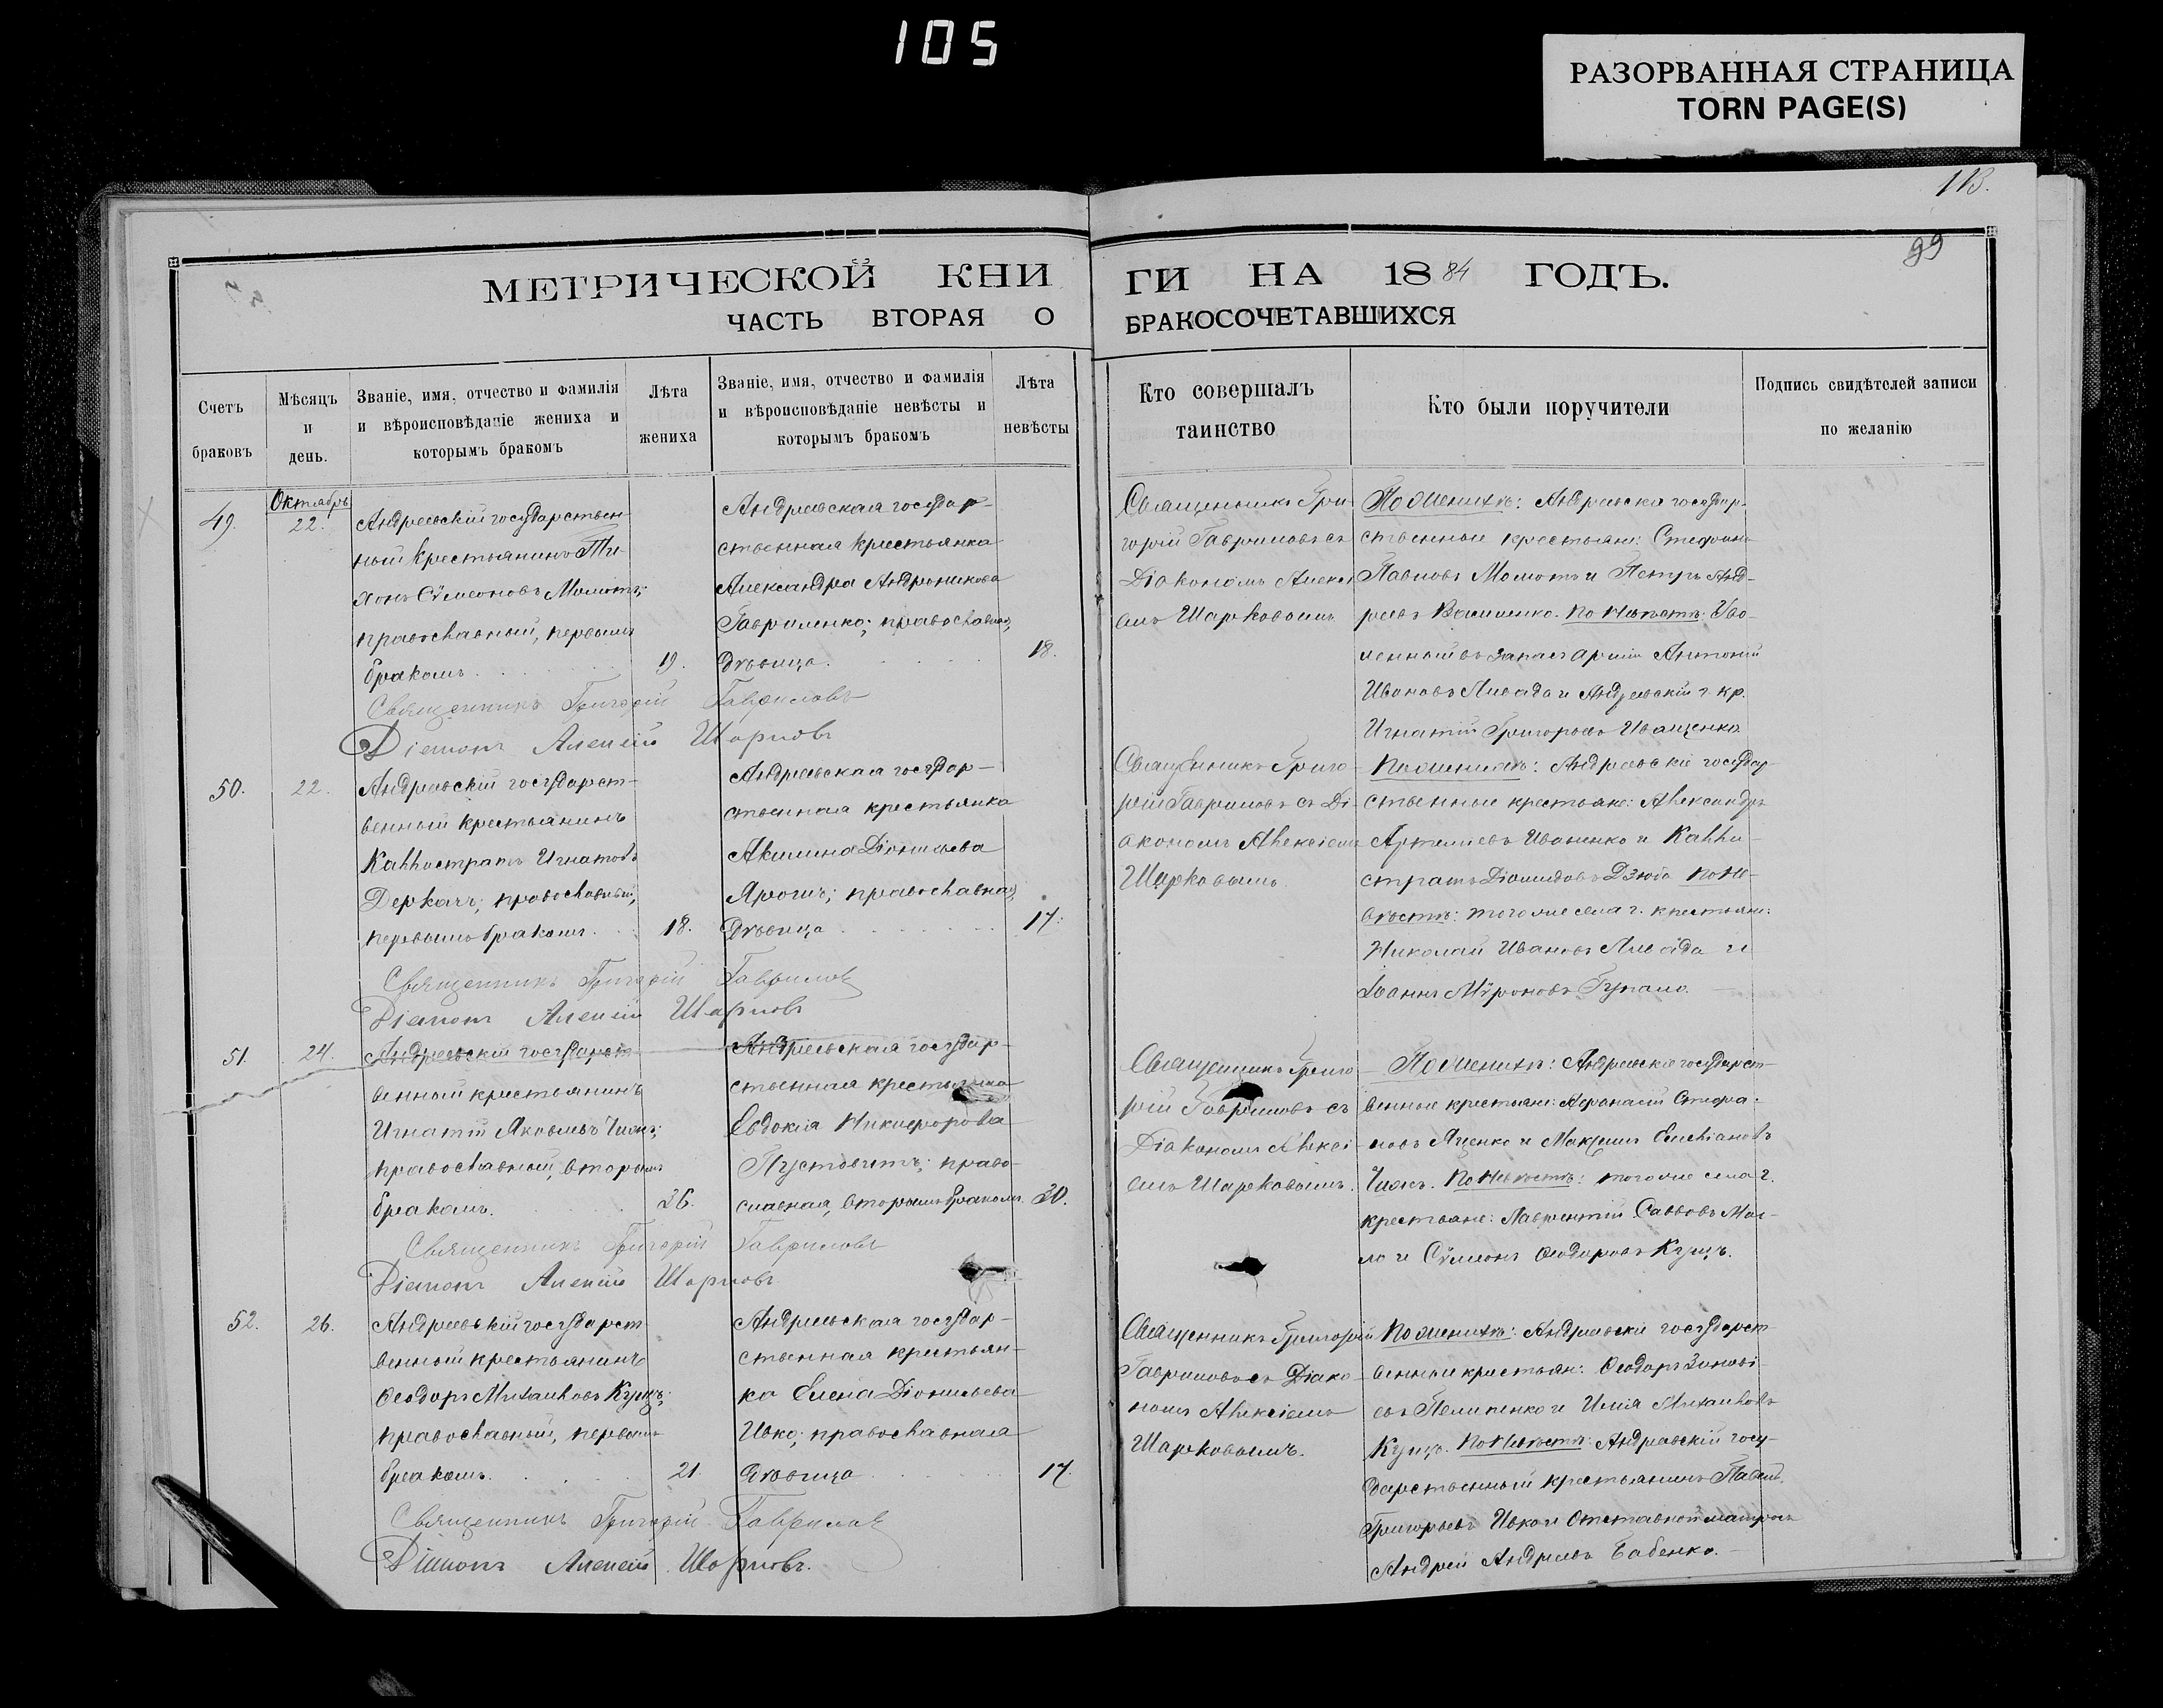 105
РАЗОРВАННАЯ СТРАНИЦА
TORN PAGE(S)
113.
99
МЕТРИЧЕСКОЙ КНИ
ГИ НА 1884 ГОДЪ.
ЧАСТЬ ВТОРАЯ О
БРАКОСОЧЕТАВШИХСЯ
Счетъ
браковъ
Мѣсяцъ
и
день.
Званіе, имя, отчество и фамилія
и вѣроисповѣданіе жениха и
которымъ бракомъ
Лѣта
жениха
Званіе, имя, отчество и фамилія
и вѣроисповѣданіе невѣсты и
которымъ бракомъ
Лѣта
невѣсты
Кто совершалъ
таинство
Кто были поручители
Подпись свидѣтелей записи
по желанію
49.
Октябрь
22.
Андреевскій государствен
ный крестьянинъ Ти-
хонъ Сѵмеоновъ Момотъ;
православный, первымъ
бракомъ.
19.
Андреевская государ-
ственная крестьянка
Александра Андроникова
Гавриленко; православная,
дѣвица.
18.
Священникъ Гри-
горій Гавриловъ съ
Діакономъ Алексі
емъ Шарковымъ
По женихѣ: Андреевскіе государ-
ственные крестьяне: Стефанъ
Павловъ Момотъ и Петръ Анд-
реевъ Василенко. По невѣстѣ: Уво-
ленный въ запасъ арміи Антоній
Ивановъ Левада и Андреевскій г. кр.
Игнатій Григорьевъ Иващенко.
Священникъ Григорій Гавриловъ
Діаконъ Алексій Шарковъ
50.
22.
Андреевскій государст-
венный крестьянинъ
Каллистратъ Игнатовъ
Деркачъ; православный,
первымъ бракомъ.
18.
Андреевская государ-
ственная крестьянка
Акилина Діонисьева
православная,
дѣвица
17.
Священникъ Григо-
рій Гавриловъ съ Ді-
акономъ Алексіемъ
Шарковымъ.
По женихѣ: Андреевскіе государ-
ственные крестьяне: Александръ
Артемьевъ Иваненко и Калли-
стратъ Діомидовъ Дзюба. По не-
вѣстѣ: того же села г. крестьяне:
Николай Ивановъ Левада и
Іоаннъ Мѵроновъ
Священникъ Григорій Гавриловъ
Діаконъ Алексій Шарковъ
51.
24.
Андреевскій государст-
венный крестьянинъ
Игнатій Яковлевъ Чижъ;
православный, вторымъ
бракомъ.
26.
Андреевская государ-
ственная крестьянка
Евдокія Никифорова
Пустовитъ; право-
славная, вторымъ бракомъ.
30.
Священникъ Григо
рій Гавриловъ съ
Діакономъ Алексі-
емъ Шарковымъ.
По женихѣ: Андреевскіе государст-
венные крестьяне: Афанасій Стефа-
новъ Яценко и Максимъ
Чижъ. По невѣстѣ: того же села г.
крестьяне: Лаврентій Саввовъ
и Сѵмеонъ Ѳеодоровъ Куцъ.
Священникъ Григорій Гавриловъ
Діаконъ Алексій Шарковъ
52.
26.
Андреевскій государст-
венный крестьянинъ
Ѳеодоръ Михаиловъ Куцъ;
православный, первымъ
бракомъ.
21.
Андреевская государ-
ственная крестьян-
ка Елена Діонисьева
Ивко; православная
дѣвица
17.
Священникъ Григорій
Гавриловъ съ Діако-
номъ Алексіемъ
Шарковымъ.
По женихѣ: Андреевскіе государст-
венные крестьян: Ѳеодоръ Зиновi-
евъ Пелипенко и Илія Михаиловъ
Куцъ. По невѣстѣ: Андреевскій госу-
дарственный крестьянинъ Павелъ
Григорьевъ Ивко и отставной матросъ
Андрей Андреевъ Бабенко.
Священникъ Григорій Гавриловъ
Діаконъ Алексій Шарковъ.